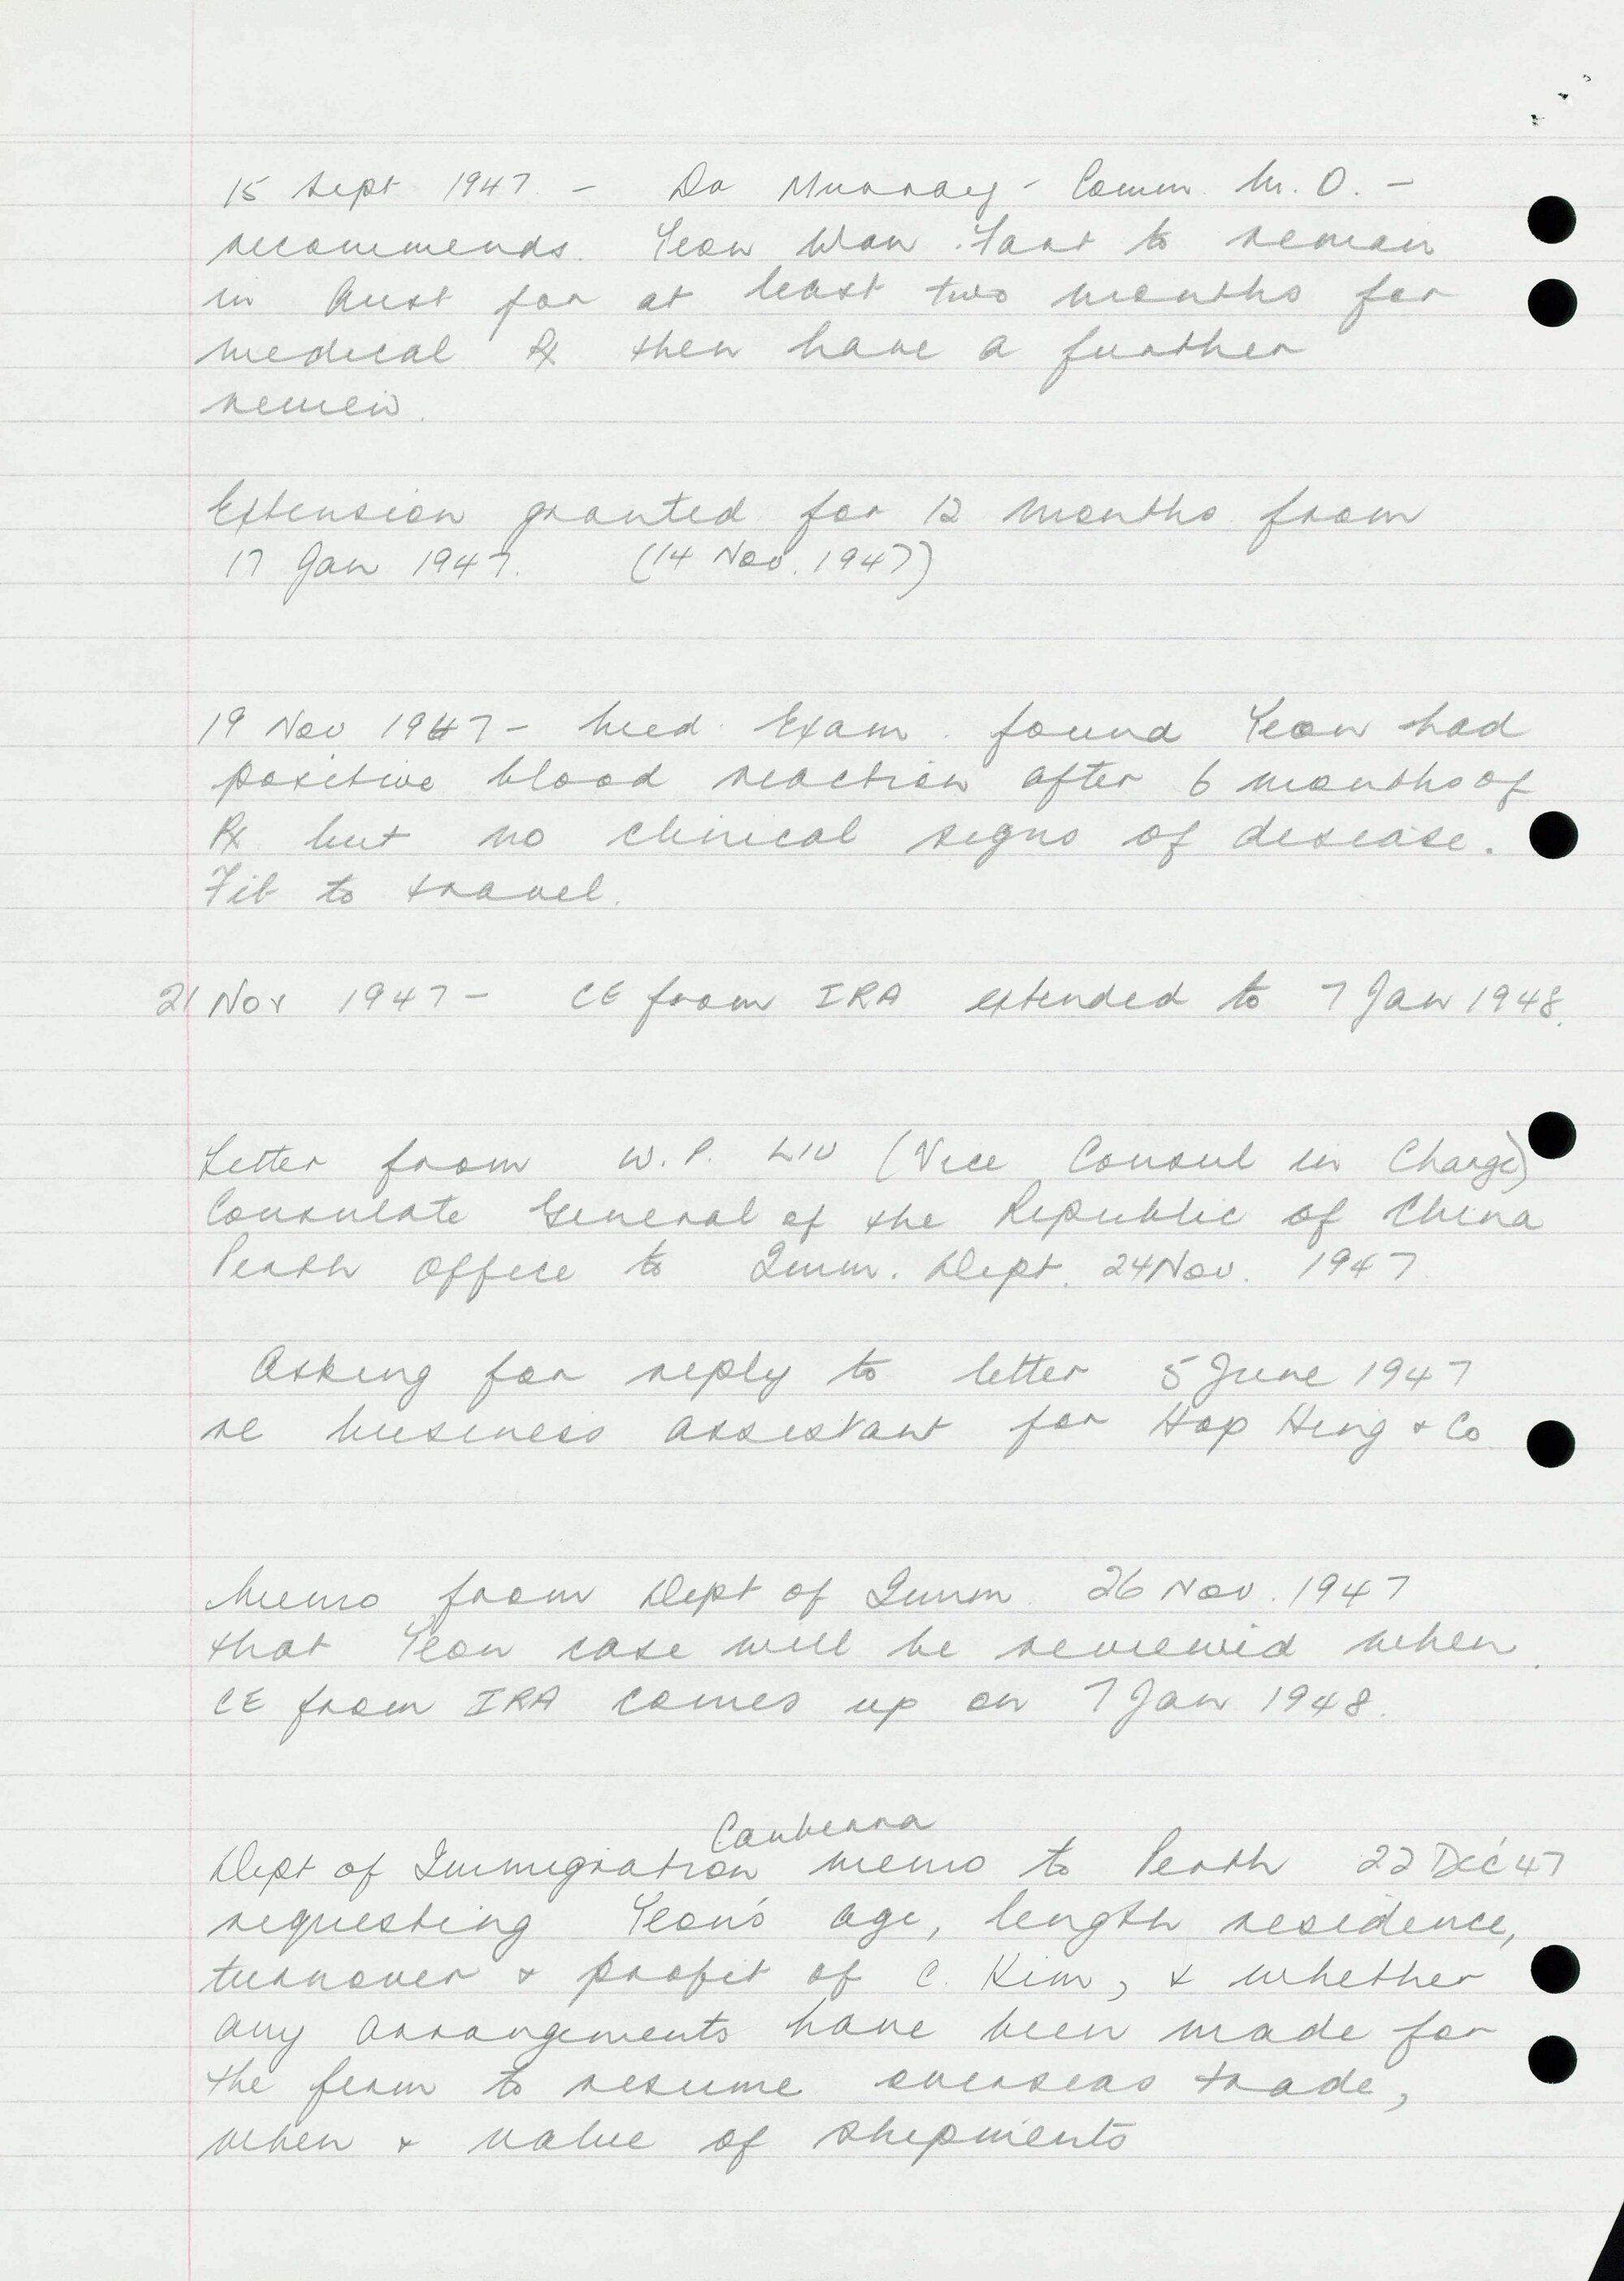 15 Sept 1947 - Dr Murray - Comm. M.O. -
recommends Yeow Wan to remain
in Aust for at least two months for
medical Rx then have a further
review.
Extension granted for 12 months from
17 Jan 1947. (14 Nov. 1947)
19 Nov 1947 - Med. Exam. found Yeow had
positive blood reaction after 6 months of
Rx but no clinical signs of disease.
Fit to travel.
21 Nov 1947 - CE from IRA extended to 7 Jan 1948.
Letter from W.P. LIU (Vice Consul in Charge)
Consulate General of the Republic of China
Perth Office to Imm. Dept. 24 Nov. 1947
Asking for reply to letter 5 June 1947
re business assistant for Hop Hing & Co
Memo from Dept of Imm 26 Nov. 1947
that Yeow case will be reviewed when
CE from IRA comes up on 7 Jan 1948.
Canberra
Dept of Immigration memo to Perth 22 Dec '47
requesting Yeow's age, length residence,
turnover & profit of C. Kim, & whether
any arrangements have been made for
the firm to resume overseas trade,
when & value of shipments